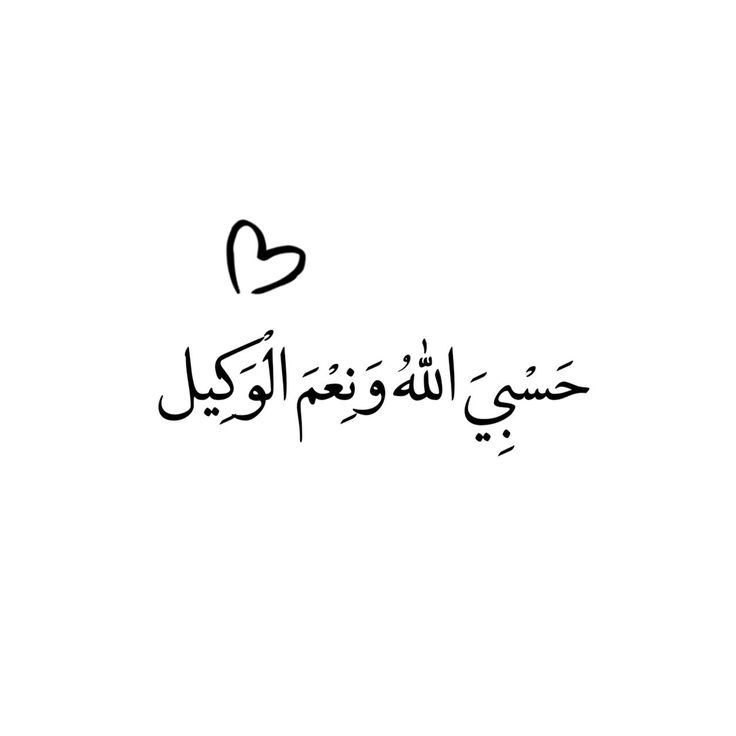 حَسْبِيَ اللّٰهُ وَنِعْمَ الْوَكِيل